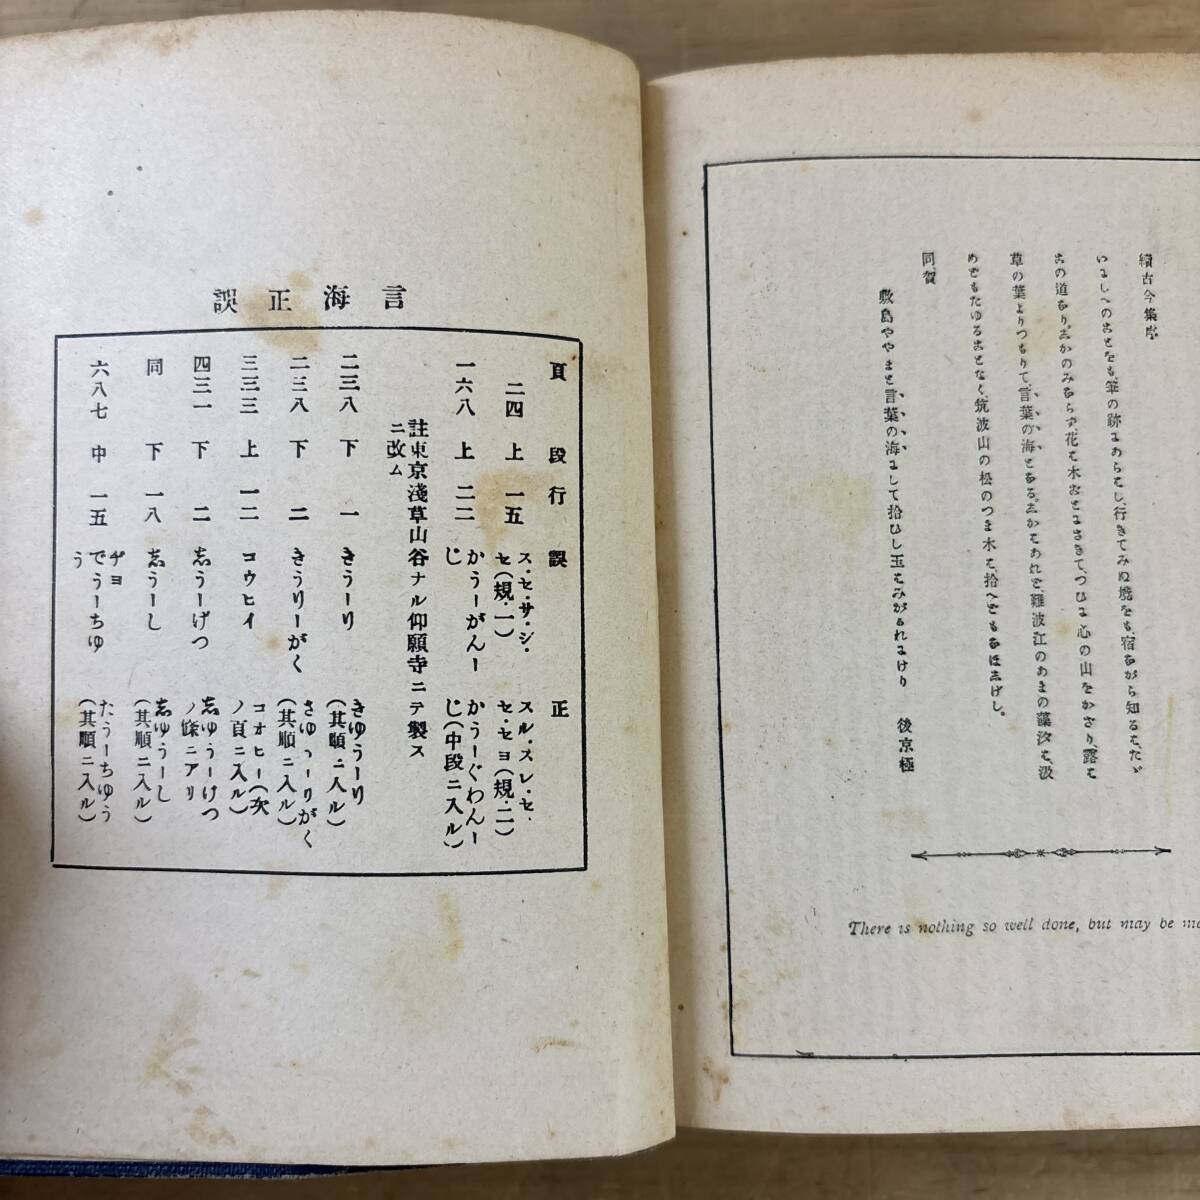 續古今集序
いにしへのことをも、筆の跡にあらはし、行きてみぬ境をも、宿ながら知るは、たゞ
この道なり。しかのみならず、花は木ごとにさきて、つひに心の山をかざり、露は
草の葉よりつもりて、言葉の海となる。しかはあれど、難波江のあまの藻汐は、汲
めどもたゆることなく、筑波山の松のつま木は、拾へどもなほしげし。
同賀
敷島ややまと言葉の海にして拾ひし玉はみがかれにけり 後京極
There is nothing so well done, but may be
言海正誤
頁 段 行 誤 正
二四 上 一五 ス・セ・サ・シ・セ(規・一) スル・スレ・セ・セ・セヨ(規・二)
一六八 上 二二 かうーがんーじ かうーぐわんーじ(中段ニ入ル)
註東京淺草山谷ナル仰願寺ニテ製スニ改ム
二三八 下 一 きうーり きゆうーり(其順ニ入ル)
二三八 下 二 きうりーがく (其順ニ入ル)
三三三 上 一二 コウヒイ コオヒー(次ノ頁ニ入ル)
四三一 下 二 志うーげつ 志ゆうーけつノ條ニアリ
同 下 一八 志うーし 志ゆうーし(其順ニ入ル)
六八七 中 一五 ヂヨでうーちゆう たうーちゆう(其順ニ入ル)